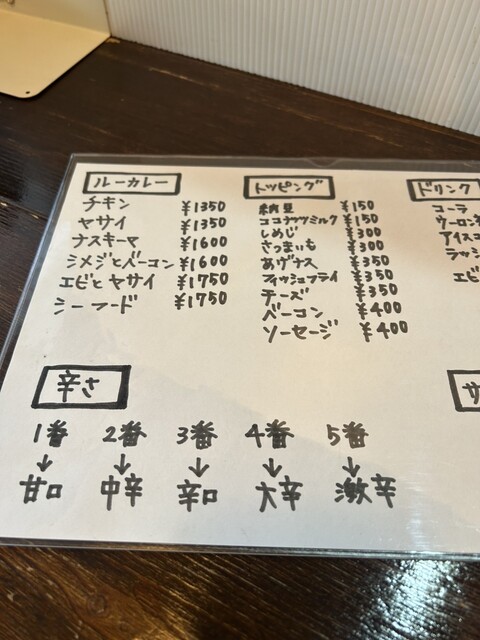 ルーカレー
チキン ¥1350
ヤサイ ¥1350
ナスキーマ ¥1600
シメジとベーコン ¥1600
エビとヤサイ ¥1750
シーフード ¥1750
トッピング
納豆 ¥150
ココナッツミルク ¥150
しめじ ¥300
さつまいも ¥300
あげナス ¥350
フィッシュフライ ¥350
チーズ ¥350
ベーコン ¥400
ソーセージ ¥400
ドリンク
コーラ
ウーロン
アイスコ
ラッシ
エビ
辛さ
1番 2番 3番 4番 5番
↓ ↓ ↓ ↓ ↓
甘口 中辛 辛口 大辛 激辛
サ